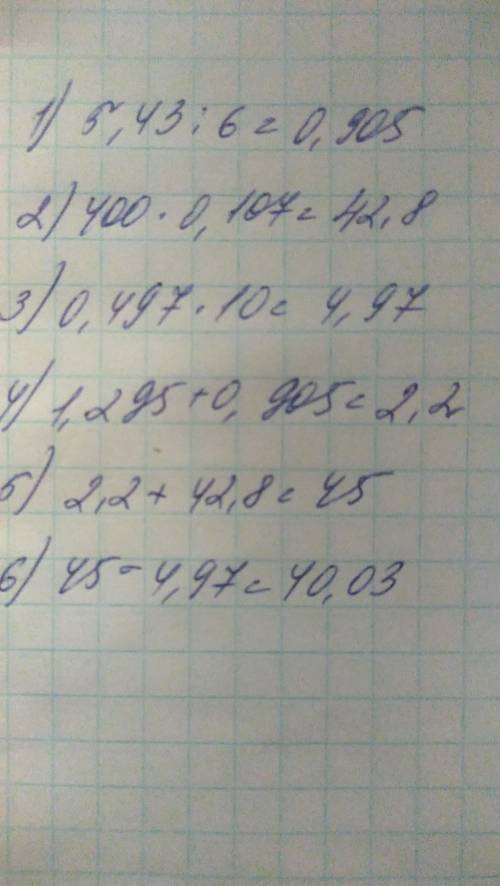 1) 5,43 : 6 = 0,905
2) 400 · 0,107 = 42,8
3) 0,497 · 10 = 4,97
4) 1,295 + 0,905 = 2,2
5) 2,2 + 42,8 = 45
6) 45 - 4,97 = 40,03